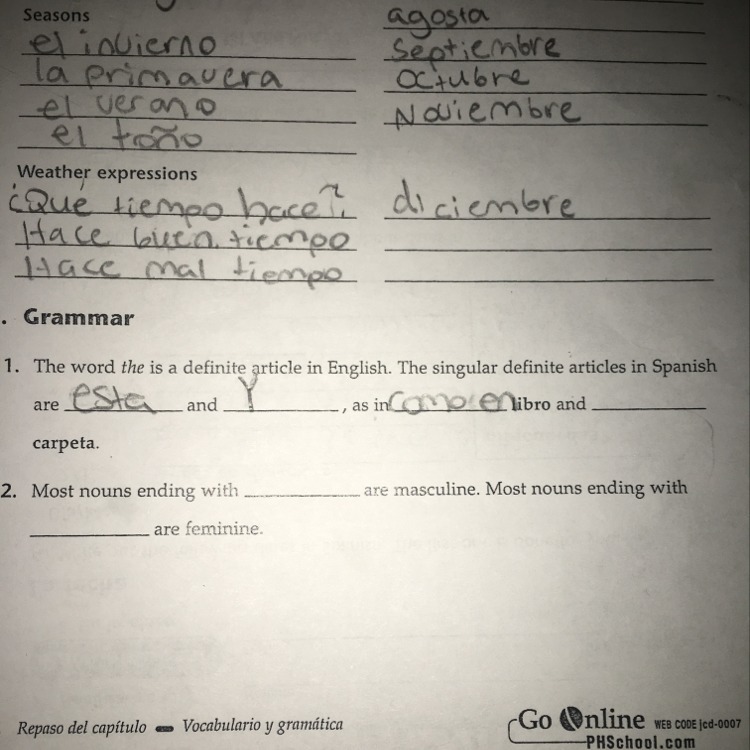 Seasons
el invierno
la primavera
el verano
el toño
agosta
Septiembre
Octubre
Noviembre
Weather expressions
¿Qué tiempo hace?
Hace buen tiempo
Hace mal tiempo
diciembre
. Grammar
1. The word the is a definite article in English. The singular definite articles in Spanish
are esta and Y, as in como en libro and
carpeta.
2. Most nouns ending with are masculine. Most nouns ending with
are feminine.
Repaso del capítulo Vocabulario y gramática
Go Online WEB CODE jcd-0007
PHSchool.com